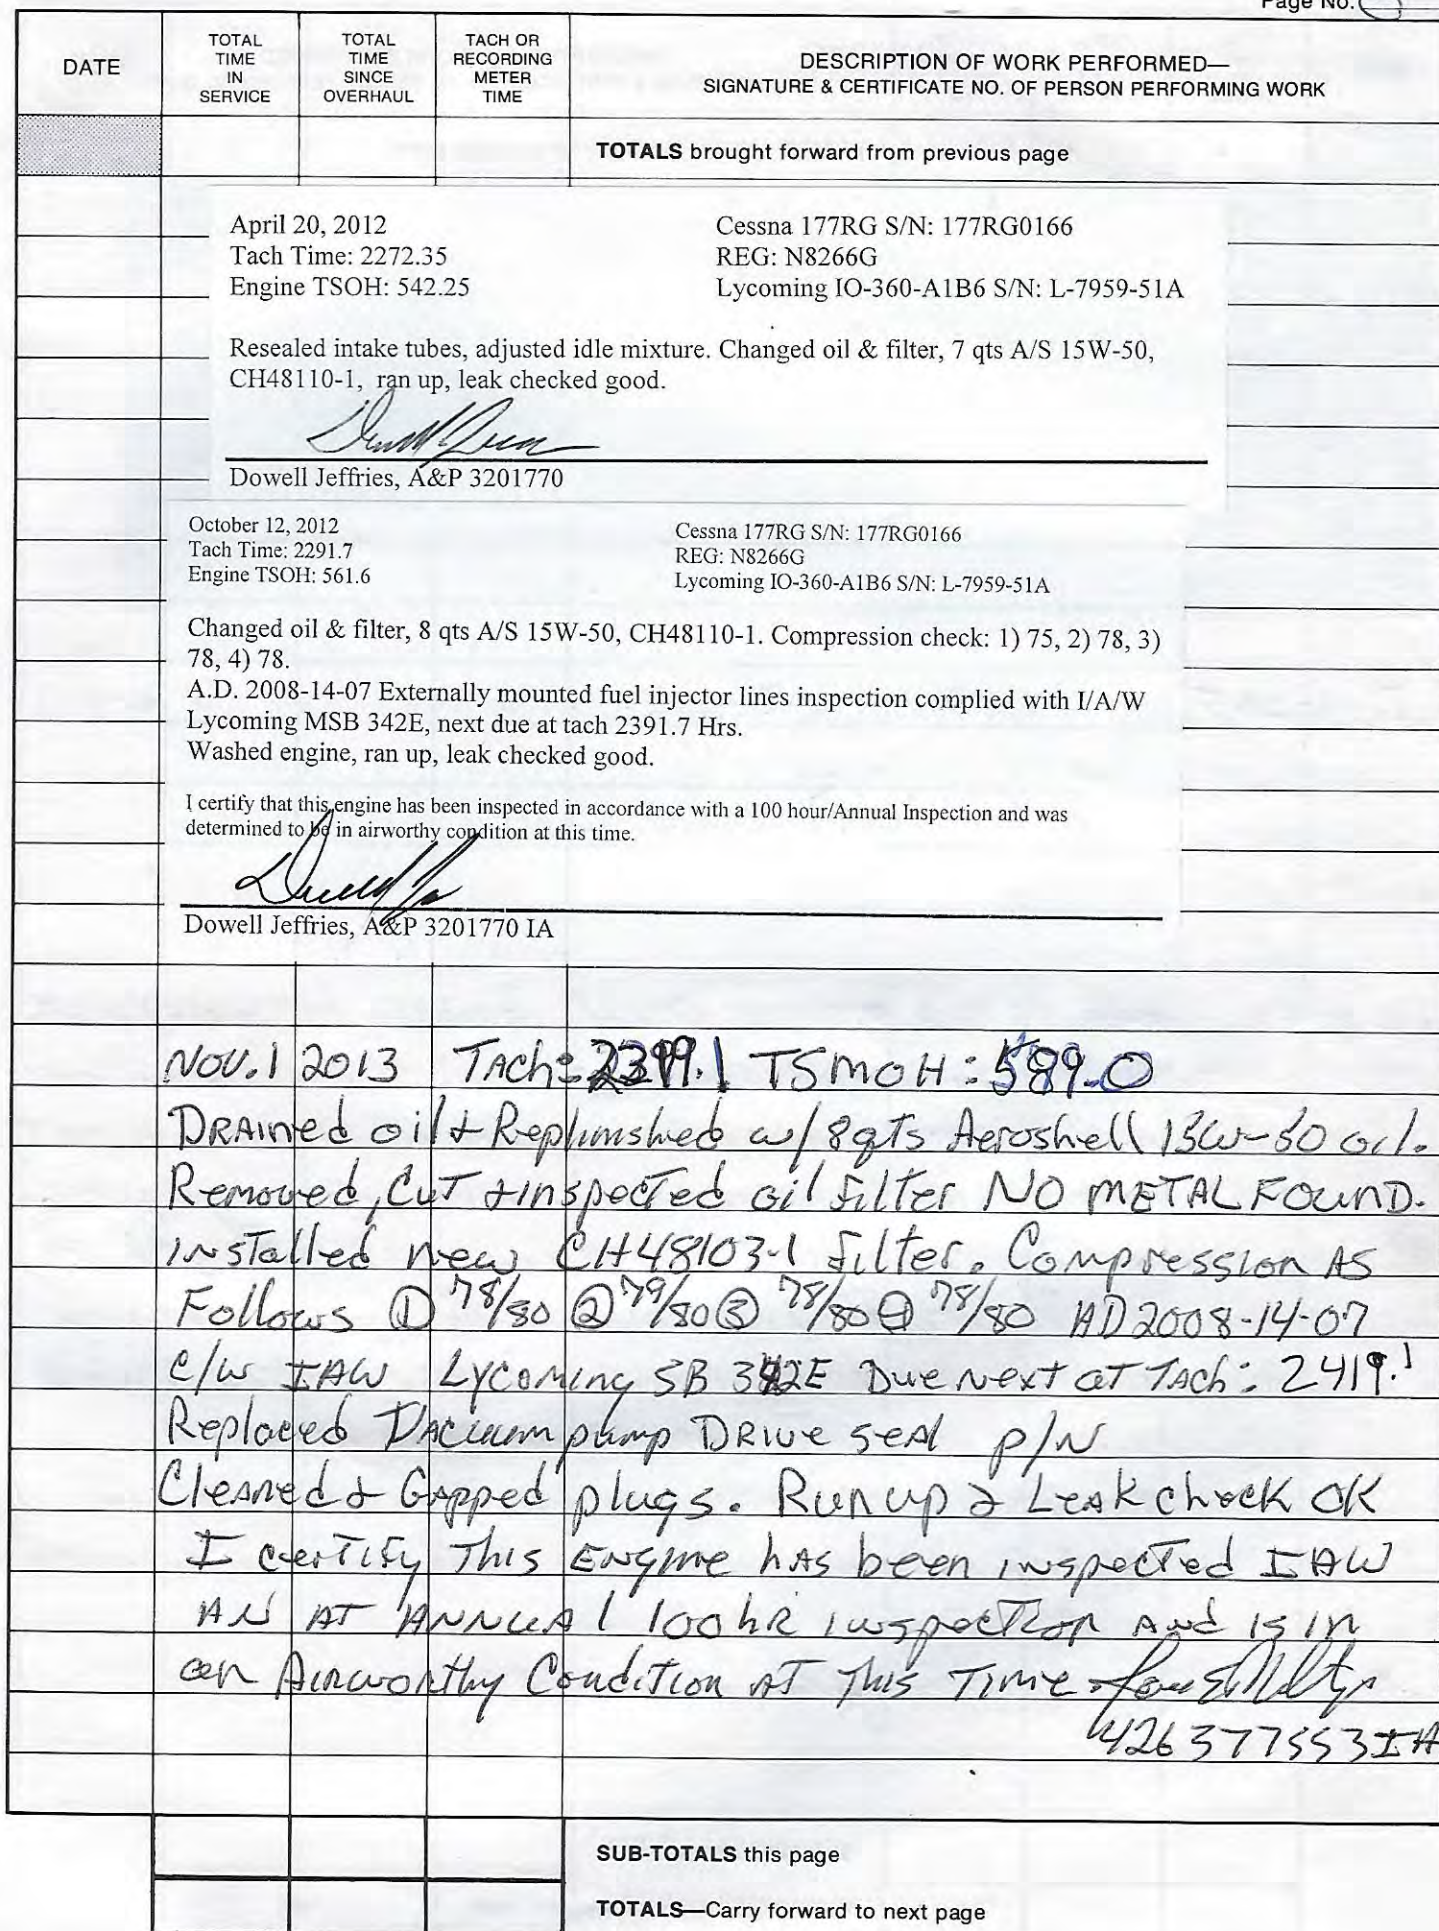 Page No.
DATE
TOTAL TIME IN SERVICE
TOTAL TIME SINCE OVERHAUL
TACH OR RECORDING METER TIME
DESCRIPTION OF WORK PERFORMED—
SIGNATURE & CERTIFICATE NO. OF PERSON PERFORMING WORK
TOTALS brought forward from previous page
April 20, 2012
Tach Time: 2272.35
Engine TSOH: 542.25
Cessna 177RG S/N: 177RG0166
REG: N8266G
Lycoming IO-360-A1B6 S/N: L-7959-51A
Resealed intake tubes, adjusted idle mixture. Changed oil & filter, 7 qts A/S 15W-50,
CH48110-1, ran up, leak checked good.
Dowell Jeffries, A&P 3201770
October 12, 2012
Tach Time: 2291.7
Engine TSOH: 561.6
Cessna 177RG S/N: 177RG0166
REG: N8266G
Lycoming IO-360-A1B6 S/N: L-7959-51A
Changed oil & filter, 8 qts A/S 15W-50, CH48110-1. Compression check: 1) 75, 2) 78, 3)
78, 4) 78.
A.D. 2008-14-07 Externally mounted fuel injector lines inspection complied with I/A/W
Lycoming MSB 342E, next due at tach 2391.7 Hrs.
Washed engine, ran up, leak checked good.
I certify that this engine has been inspected in accordance with a 100 hour/Annual Inspection and was
determined to be in airworthy condition at this time.
Dowell Jeffries, A&P 3201770 IA
NOV. 1 2013 TACh: TSMOH: 589.0
DRAined oil & Replinished w/ 8qts Aeroshell 15W-50 oil.
Removed, CuT & inspected oil filter NO METAL FOUND.
iNSTalled new CH48103-1 filter. Compression AS
Follows ① 78/80 ② 79/80 ③ 78/80 ④ 78/80 AD 2008-14-07
C/W IAW Lycoming SB 342E Due Next at TAch: 2419.1
Replaced VAcuum pump DRive seAl p/N
CleAned & GApped plugs. Run up & LeAk check OK
I certify This Engine hAs been inspected IAW
AN AT ANNUAl 100 hR inspection And is in
an AirwoRthy Condition AT This Time
426377553 IA
SUB-TOTALS this page
TOTALS—Carry forward to next page